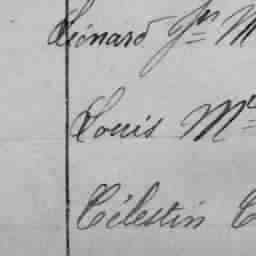 Léonard Jⁿ M
Louis Mᶜ
Célestin C